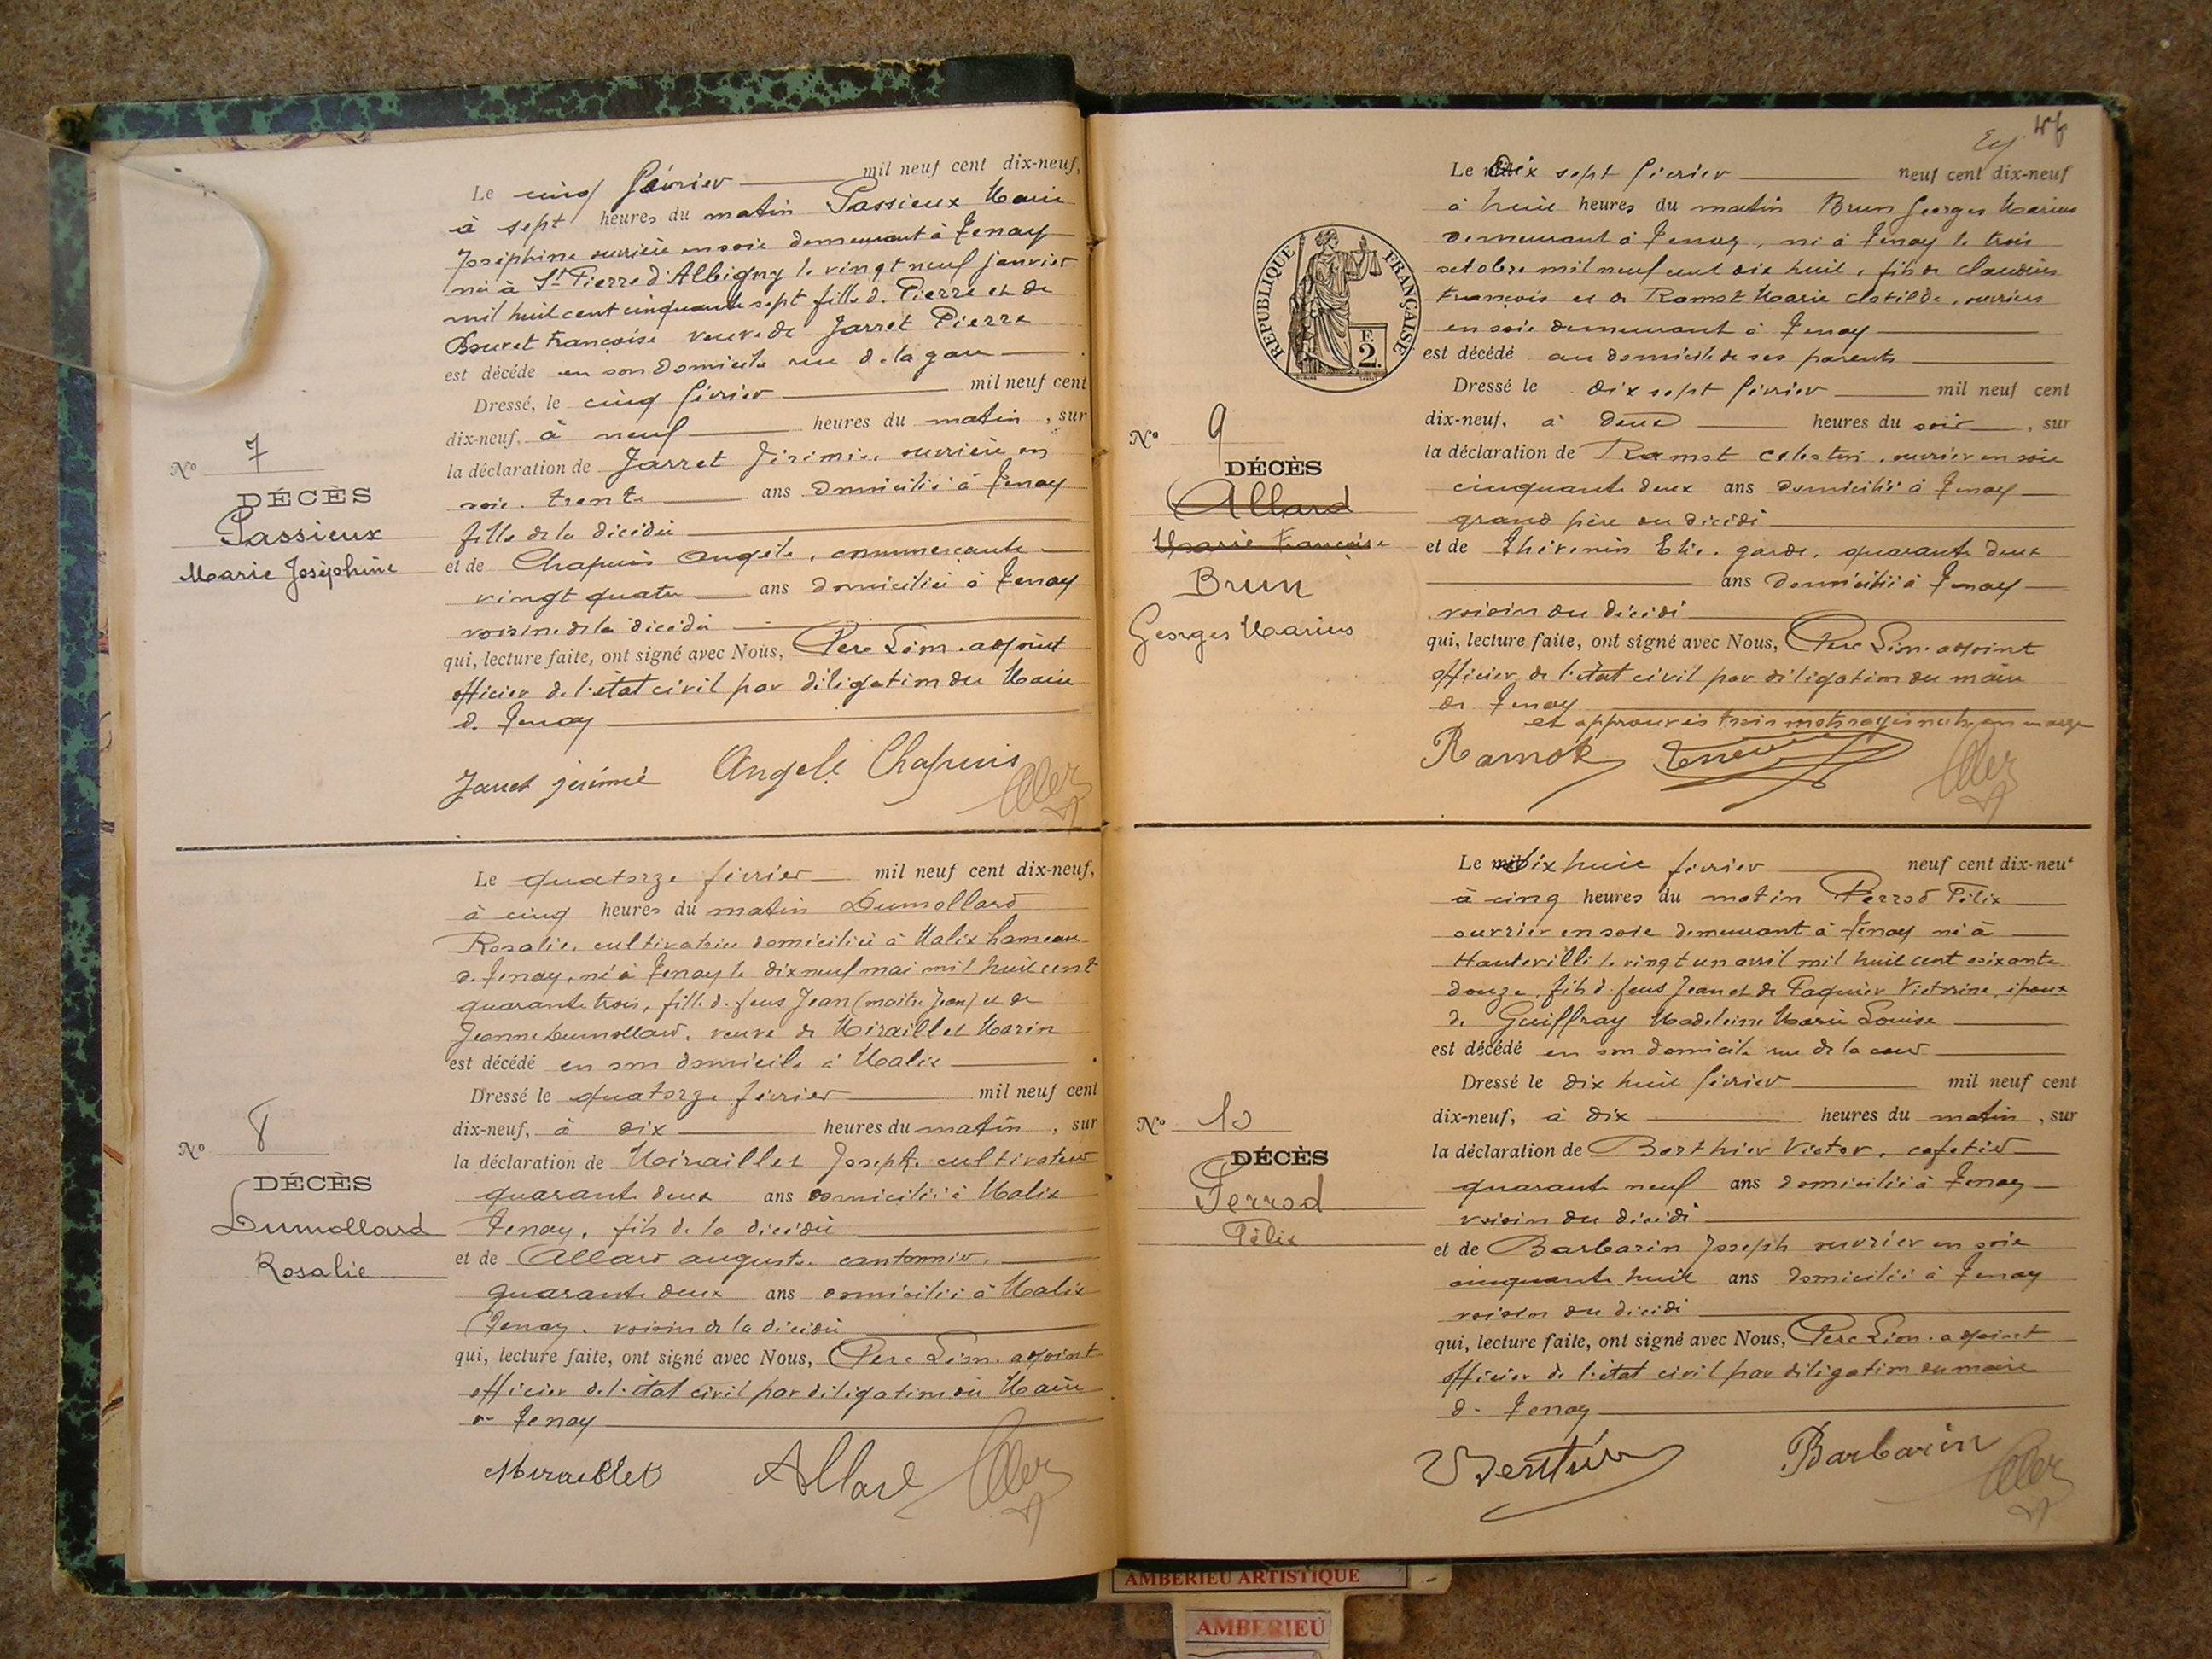 Le cinq février mil neuf cent dix-neuf,
à sept heures du matin Passieux Marie
Joséphine ouvrière en soie demeurant à Tenay
née à St Pierre d'Albigny le vingt neuf janvier
mil huit cent cinquante sept fille de Pierre et de
Bouvet Françoise veuve de Jarret Pierre
est décédé en son domicile rue de la gare
Dressé, le cinq février mil neuf cent
dix-neuf, à neuf heures du matin, sur
la déclaration de Jarret Jérémie, ouvrière en
soie, trente ans domiciliée à Tenay
fille de la décédée
et de Chapuis Angèle, commerçante
vingt quatre ans domiciliée à Tenay
voisine de la décédée
qui, lecture faite, ont signé avec Nous, Pere Léon. adjoint
officier de l'état civil par délégation du Maire
de Tenay
Jarret jérémie Angele Chapuis
No 7
DÉCÈS
Passieux
Marie Joséphine
Le quatorze février mil neuf cent dix-neuf,
à cinq heures du matin Dumollard
Rosalie, cultivatrice domiciliée à Malix hameau
de Tenay, né à Tenay le dix neuf mai mil huit cent
quarante trois, fille de feus Jean (maitre Jean) et de
Jeanne Dumollard, veuve de Miraillet Marin
est décédé en son domicile à Malix
Dressé le quatorze février mil neuf cent
dix-neuf, à dix heures du matin, sur
la déclaration de Miraillet Joseph, cultivateur
quarante deux ans domicilié à Malix
Tenay, fils de la décédée
et de Allard auguste, cantonnier,
quarante deux ans domicilié à Malix
Tenay, voisin de la décédée
qui, lecture faite, ont signé avec Nous, Pere Léon. adjoint
officier de l'état civil par délégation du Maire
de Tenay
Miraillet Allard
No 8
DÉCÈS
Dumollard
Rosalie
Le Dix sept février neuf cent dix-neuf
à huit heures du matin Brun Georges Marius
demeurant à Tenay, né à Tenay le trois
octobre mil neuf cent dix huit, fils de Claudius
François et de Ramot Marie Clotilde, ouvriers
en soie demeurant à Tenay
est décédé au domicile de ses parents
Dressé le dix sept février mil neuf cent
dix-neuf, à deux heures du soir, sur
la déclaration de Ramot Célestin, ouvrier en soie
cinquante deux ans domicilié à Tenay
grand père du décédé
et de Thévenin Elie, garde, quarante deux
ans domicilié à Tenay
voisin du décédé
qui, lecture faite, ont signé avec Nous, Pere Léon. adjoint
officier de l'état civil par délégation du maire
de Tenay
et approuvés trois mots rayés nuls en marge
Ramot
RÉPUBLIQUE FRANÇAISE
E
2.
No 9
DÉCÈS
Allard
Marie Françoise
Brun
Georges Marius
Le Dix huit février neuf cent dix-neuf
à cinq heures du matin Perrod Félix
ouvrier en soie demeurant à Tenay né à
Hauteville le vingt un avril mil huit cent soixante
douze, fils de feus Jean et de Paquier Victorine, époux
de Guiffray Madeleine Marie Louise
est décédé en son domicile rue de la cour
Dressé le dix huit février mil neuf cent
dix-neuf, à dix heures du matin, sur
la déclaration de Berthier Victor, cafetier
quarante neuf ans domicilié à Tenay
voisin du décédé
et de Barbarin Joseph ouvrier en soie
cinquante huit ans domicilié à Tenay
voisin du décédé
qui, lecture faite, ont signé avec Nous, Pere Léon. adjoint
officier de l'état civil par délégation du maire
de Tenay
Barbarin
No 10
DÉCÈS
Perrod
Félix
AMBERIEU ARTISTIQUE
AMBERIEU